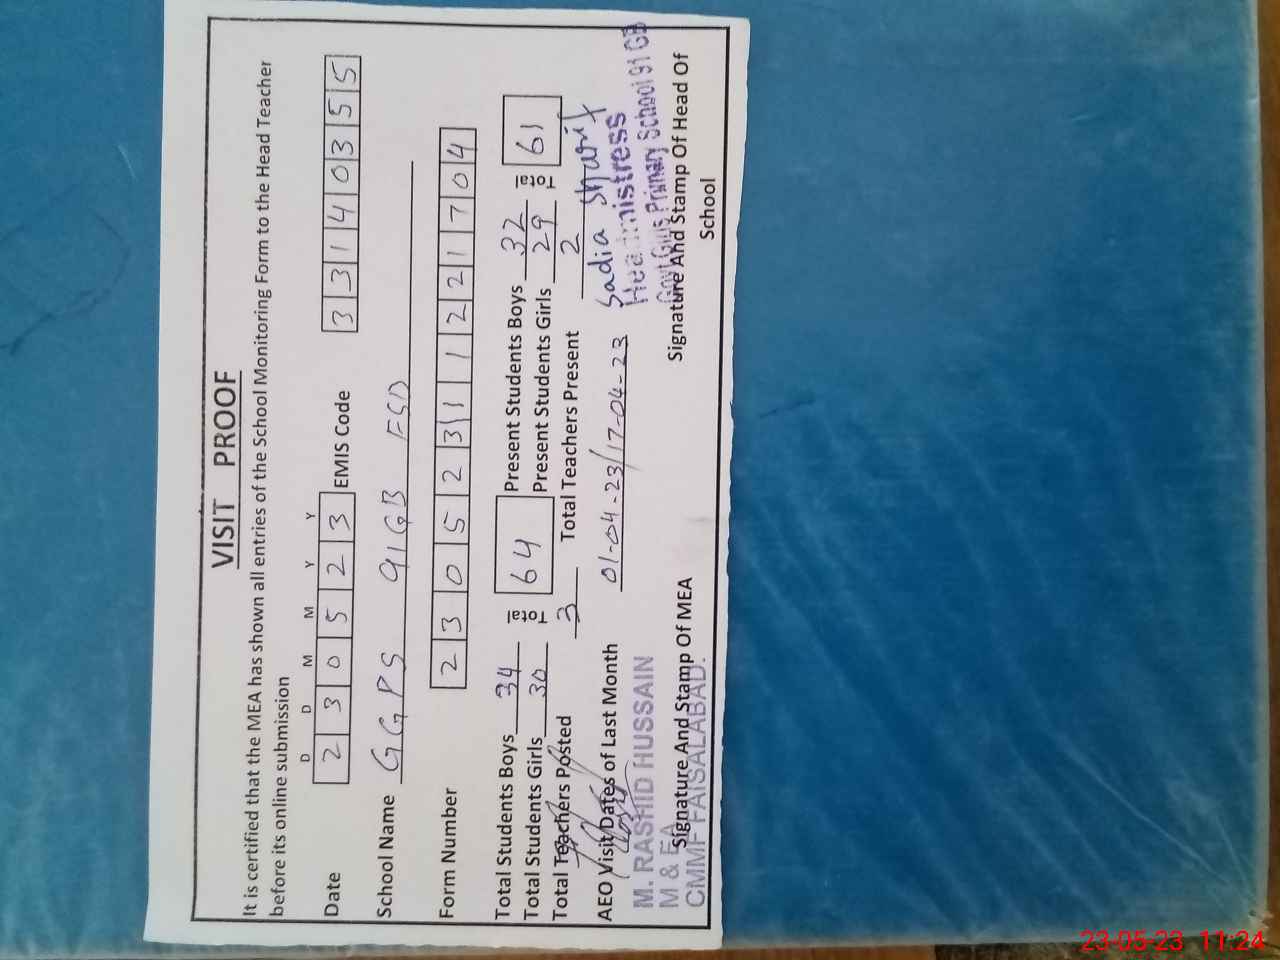 VISIT PROOF
It is certified that the MEA has shown all entries of the School Monitoring Form to the Head Teacher
before its online submission
D D M M Y Y
Date 2 3 0 5 2 3 EMIS Code 3 3 1 4 0 3 5 5
School Name GGPS 91GB FSD
Form Number 2 3 0 5 2 3 1 1 2 2 1 7 0 4
Total Students Boys 34 Total 64 Present Students Boys 32 Total 61
Total Students Girls 30 Present Students Girls 29
Total Teachers Posted 3 Total Teachers Present 2
AEO Visit Dates of Last Month 01-04-23/17-04-23 Sadia Sharif
M. RASHID HUSSAIN Headmistress
M & EA Govt. Girls Primary School 91 GB
Signature And Stamp Of MEA Signature And Stamp Of Head Of
CMMF FAISALABAD. School
23-05-23 11:24